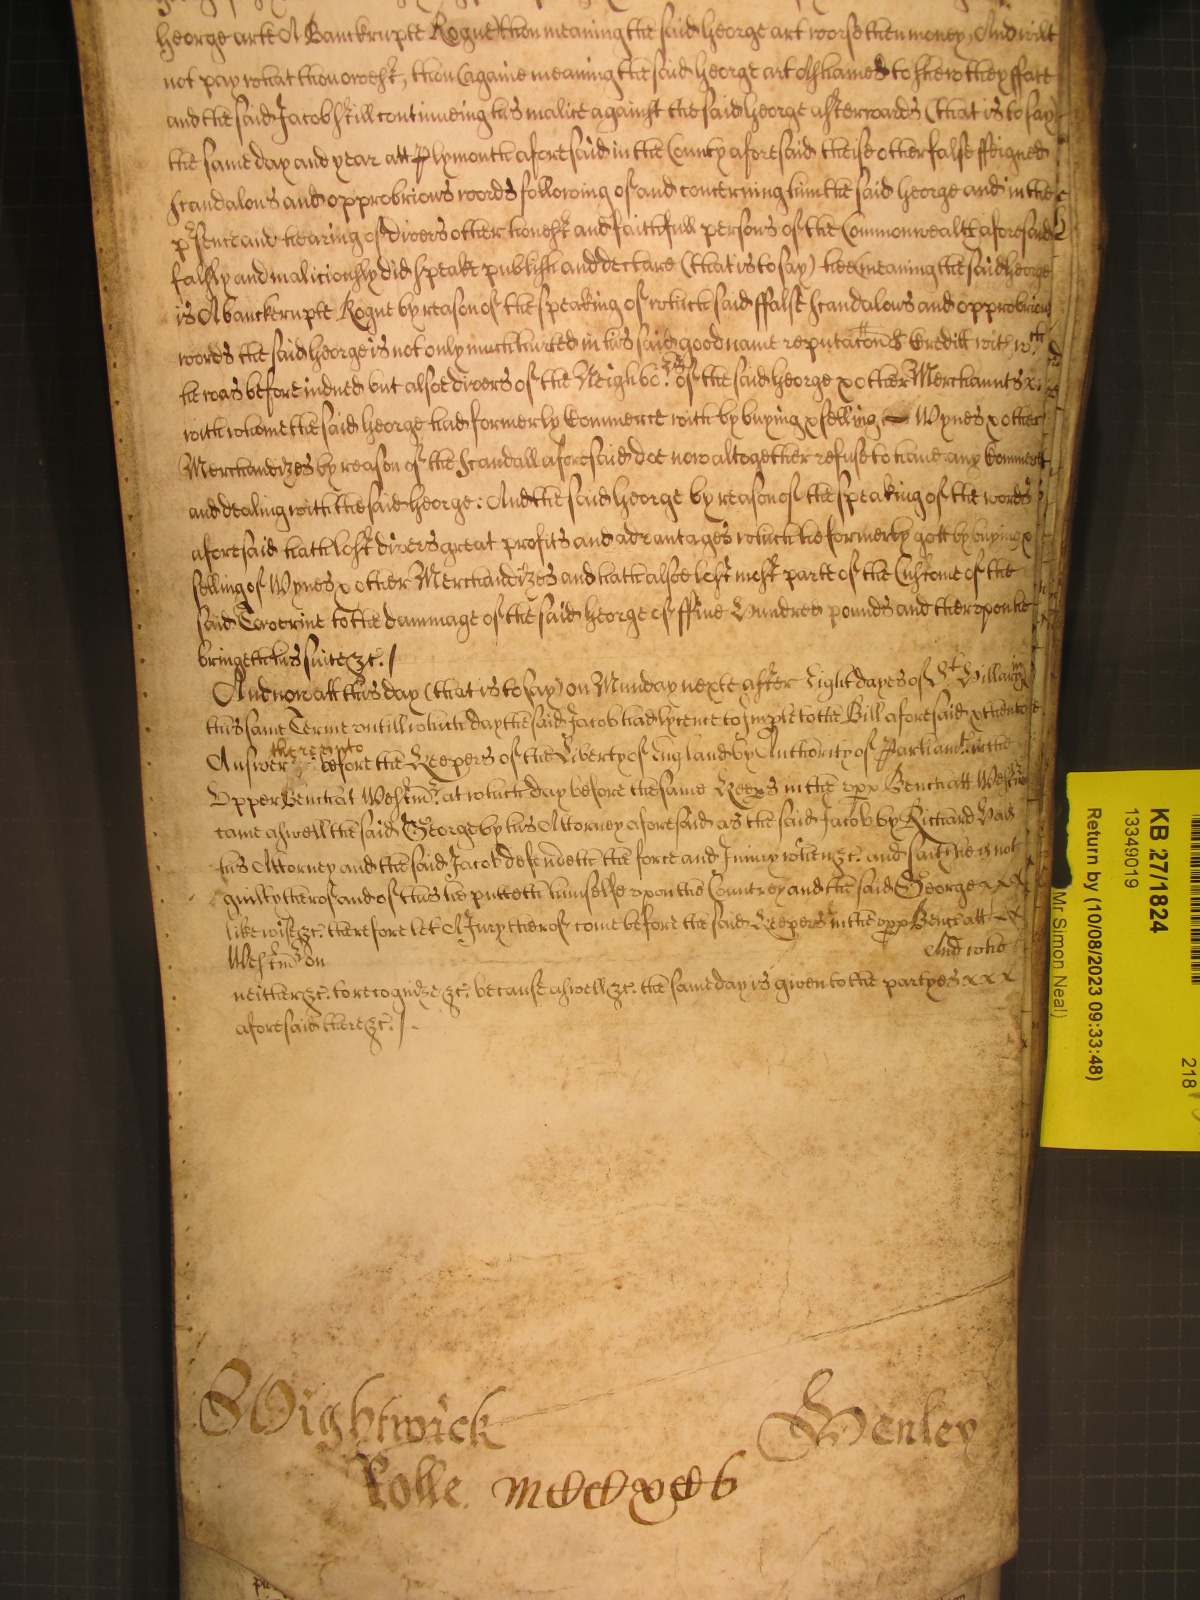 George arte A Banckrupte Rogue thou meaning the said George art worse then money, And wilt
not pay what thou owest, thou (againe meaning the said George art Ashamed to shew thy fface
and the said Jacob still continueing his malice against the said George afterwards (that is to say)
the same day and year att Plymouth aforesaid in the County aforesaid theise other false ffeigned
scandalous and opprobrious words following of and concerning him the said George and in the
p'sence and hearing of divers other honest and faithfull persons of the Commonwealth aforesaid
falsly and maliciously did speake publish and declare (that is to say) hee (meaning the said George
is A banckerupte Rogue by reason of the speaking of which said ffalse scandalous and opprobrious
words the said George is not only much hurted in his said good name reputacon & Creditt with wch
he was before indued but alsoe divers of the Neighbors of the said George & other Merchannts
with whome the said George had formerly Commerce with by buying & selling Wynes & other
Merchandizes by reason of the scandall aforesaid doe now altogether refuse to have any Commerce
and dealing with the said George: And the said George by reason of the speaking of the words
aforesaid hath lost divers great profits and advantages which he formerly gott by buying &
selling of Wynes & other Merchandizes and hath alsoe lost most parte of the Custome of the
said Taverine to the dammage of the said George of ffive Hundred pounds and thereupon he
bringeth his suite &c. /
And now att this day (that is to say) on Munday nexte after Eight dayes of St Hillary in
this same Terme untill which day the said Jacob had lycence to Imple to the Bill aforesaid & then to
Answer thereunto before the Keepers of the Liberty of England by Authority of Parliamt in the
Upper Bench at Westmr. at which day before the same Keeps in the upp Bench att Westmr
came aswell the said George by his Attorney aforesaid as the said Jacob by Richard
his Attorney and the said Jacob defendeth the force and Iniury when &c. and saith he is not
guilty therof and of this he putteth himselfe upon the Countrey and the said George x x x
likewise &c. therefore let A Jury therof come before the said Keepers in the upp Bench att x x
Westmr on And who
neither &c. to recognize &c. because aswell &c. the same day is given to the partyes x x x
aforesaid there &c. /.
Wightwick Henley
Rolle
KB 27/1824
13349019
Return by (10/08/2023 09:33:48)
Mr Simon Neal)
218